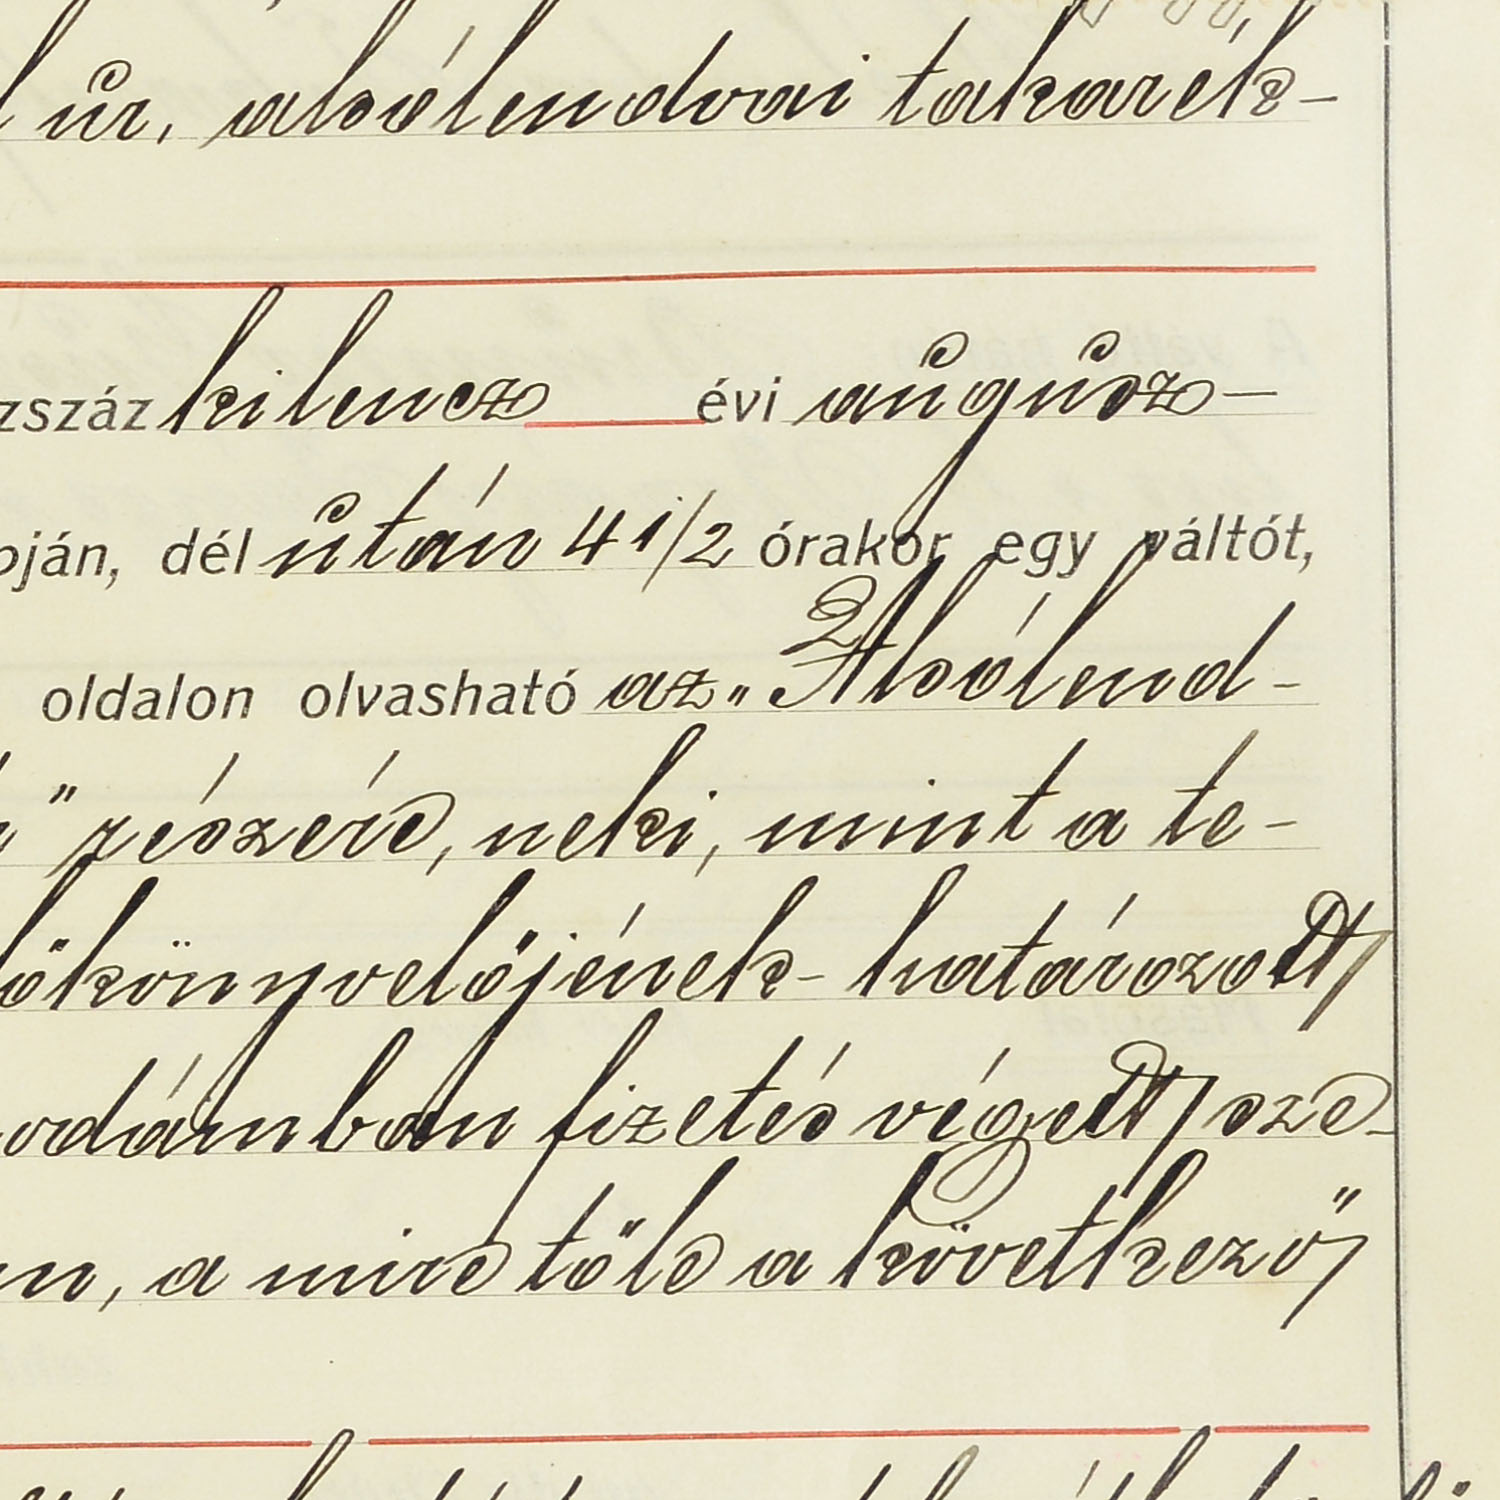 úr, alsólendvai takarék-
zszáz kilencz évi augusz-
pján, dél után 4 1/2 órakor egy váltót,
oldalon olvasható az „Alsólend-
" részére, neki, mint a te-
főkönyvelőjének - határozott
irodámban fizetés végett sze-
n, a mire tőle a következő